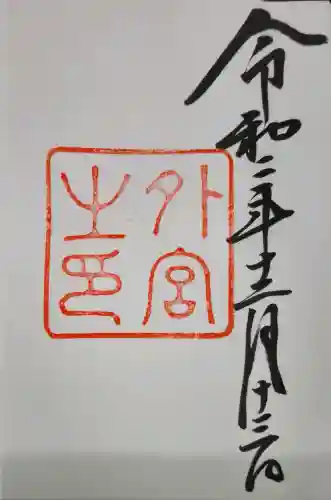 令和二年十二月十三日
外宮
之印